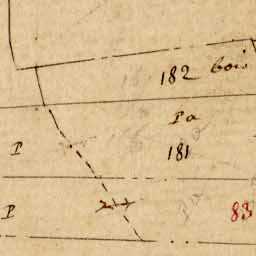 182 bois
Pa
P 181
P 83